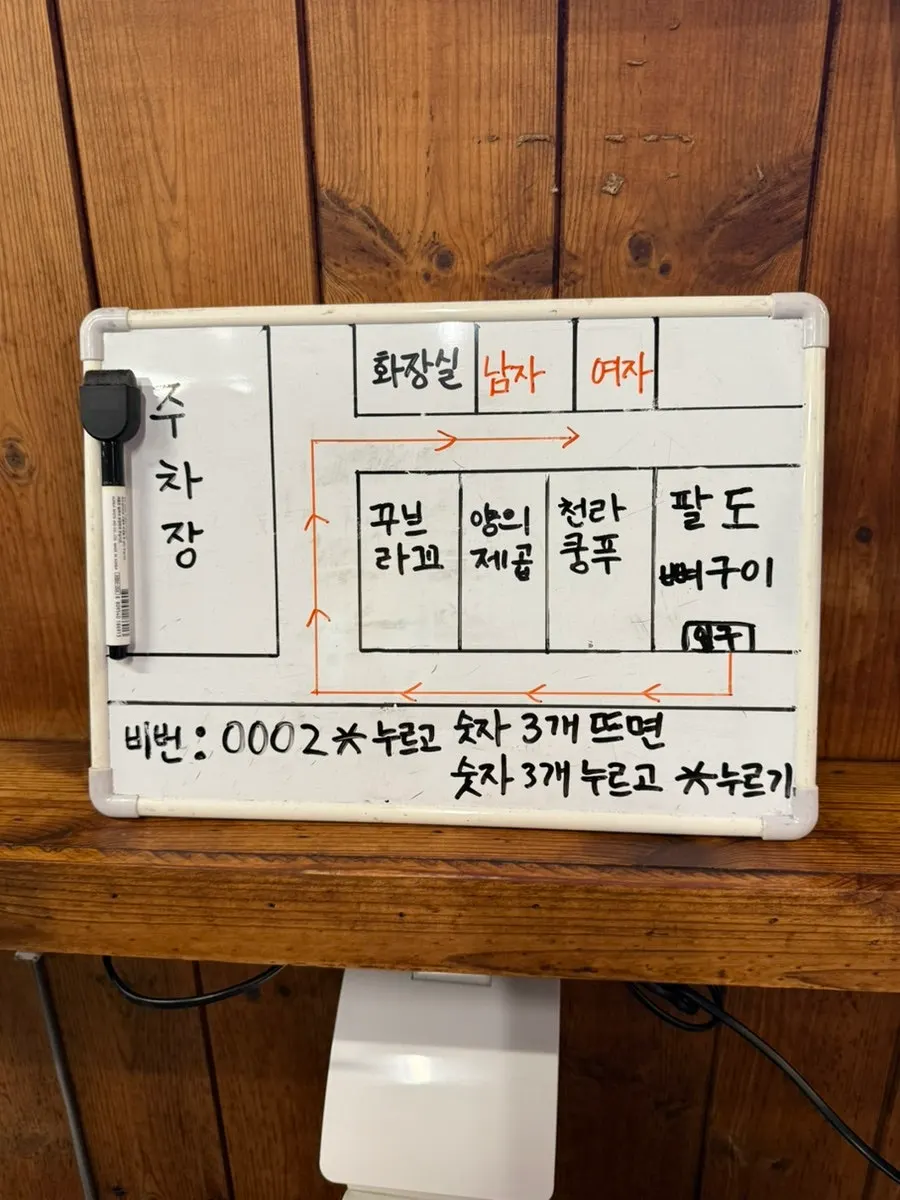 화장실 남자 여자
주
차
장
꾸브
라꼬
양의
제곱
천라
쿵푸
팔도
뼈구이
입구
비번: 0002* 누르고 숫자 3개 뜨면
숫자 3개 누르고 *누르기